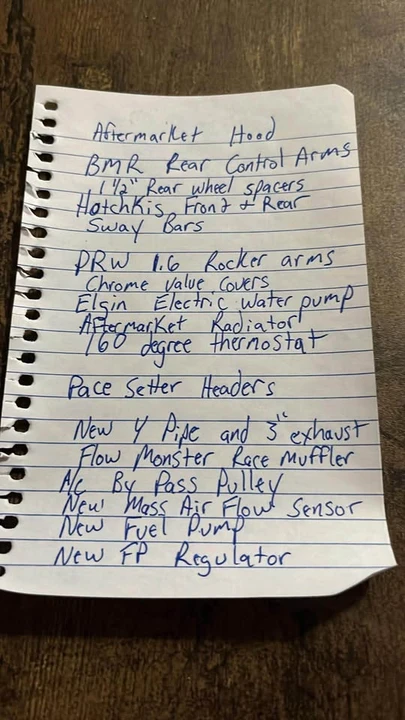 Aftermarket Hood
BMR Rear Control Arms
1 1/2" Rear wheel spacers
HotchKis Front & Rear
Sway Bars
PRW 1.6 Rocker arms
Chrome valve covers
Elgin Electric water pump
Aftermarket Radiator
160 degree thermostat
Pace Setter Headers
New Y Pipe and 3" exhaust
Flow Monster Race Muffler
A/c By Pass Pulley
New Mass Air Flow Sensor
New Fuel Pump
New FP Regulator